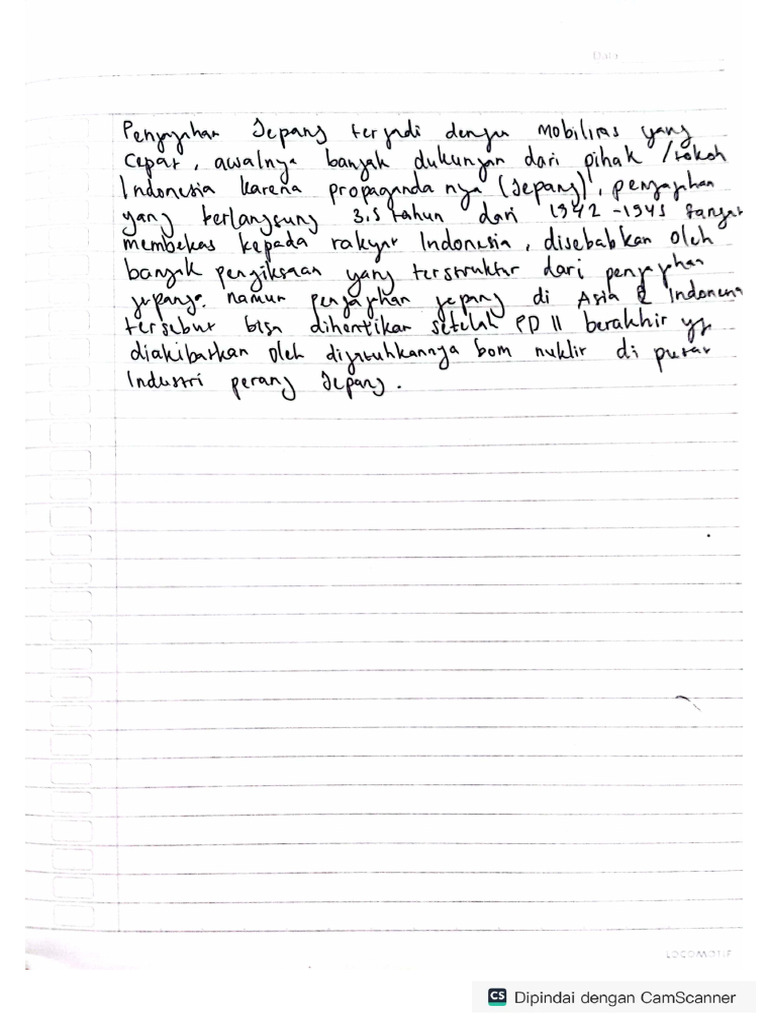 Data
Penjajahan Jepang terjadi dengan mobilitas yang
cepat, awalnya banyak dukungan dari pihak /tokoh
Indonesia karena propaganda nya (Jepang), penjajahan
yang berlangsung 3.5 tahun dari 1942 - 1945 sangat
membekas kepada rakyat Indonesia, disebabkan oleh
banyak pengiksaan yang terstruktur dari penjajahan
jepang. namun penjajahan jepang di Asia & Indonesia
tersebut bisa dihentikan setelah PD II berakhir yg
diakibatkan oleh dijatuhkannya bom nuklir di pusat
Industri perang Jepang.
LOCOMOTIF
CS Dipindai dengan CamScanner